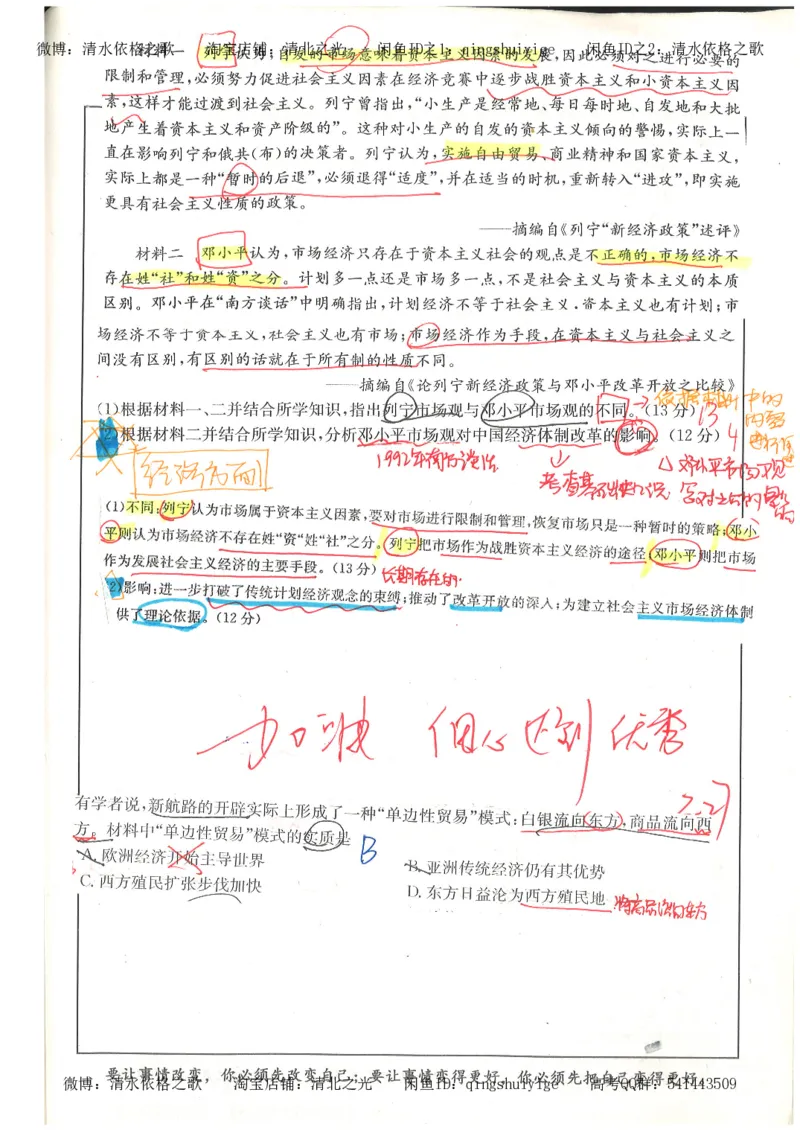 微博：清水依格之歌 淘宝店铺：清北之光 闲鱼ID之1：qingshuiyige 闲鱼ID之2：清水依格之歌
材料一 列宁认为,自发的市场意味着资本主义因素的发展,因此必须对之进行必要的
限制和管理,必须努力促进社会主义因素在经济竞赛中逐步战胜资本主义和小资本主义因
素,这样才能过渡到社会主义。列宁曾指出,“小生产是经常地、每日每时地、自发地和大批
地产生着资本主义和资产阶级的”。这种对小生产的自发的资本主义倾向的警惕,实际上一
直在影响列宁和俄共(布)的决策者。列宁认为,实施自由贸易、商业精神和国家资本主义,
实际上都是一种“暂时的后退”,必须退得“适度”,并在适当的时机,重新转入“进攻”,即实施
更具有社会主义性质的政策。
——摘编自《列宁“新经济政策”述评》
材料二 邓小平认为,市场经济只存在于资本主义社会的观点是不正确的,市场经济不
存在姓“社”和姓“资”之分。计划多一点还是市场多一点,不是社会主义与资本主义的本质
区别。邓小平在“南方谈话”中明确指出,计划经济不等于社会主义,资本主义也有计划;市
场经济不等于资本主义,社会主义也有市场;市场经济作为手段,在资本主义与社会主义之
间没有区别,有区别的话就在于所有制的性质不同。
——摘编自《论列宁新经济政策与邓小平改革开放之比较》
(1)根据材料一、二并结合所学知识,指出列宁市场观与邓小平市场观的不同。(13分) 13
依据材料中的内容
(2)根据材料二并结合所学知识,分析邓小平市场观对中国经济体制改革的影响。(12分) 4
1992年南方谈话
经济方面
(1)不同:列宁认为市场属于资本主义因素,要对市场进行限制和管理,恢复市场只是一种暂时的策略;邓小
平则认为市场经济不存在姓“资”姓“社”之分。列宁把市场作为战胜资本主义经济的途径;邓小平则把市场
作为发展社会主义经济的主要手段。(13分) 长期存在的
(2)影响:进一步打破了传统计划经济观念的束缚;推动了改革开放的深入;为建立社会主义市场经济体制
供了理论依据。(12分)
加油 细心 达到优秀
有学者说,新航路的开辟实际上形成了一种“单边性贸易”模式:白银流向东方,商品流向西
方。材料中“单边性贸易”模式的实质是 B
7.27
A.欧洲经济开始主导世界
B.亚洲传统经济仍有其优势
C.西方殖民扩张步伐加快
D.东方日益沦为西方殖民地
要让事情改变，你必须先改变自己；要让事情变得更好，你必须先把自己变得更好。
微博：清水依格之歌 淘宝店铺：清北之光 闲鱼ID：qingshuiyige 高考QQ群：541443509